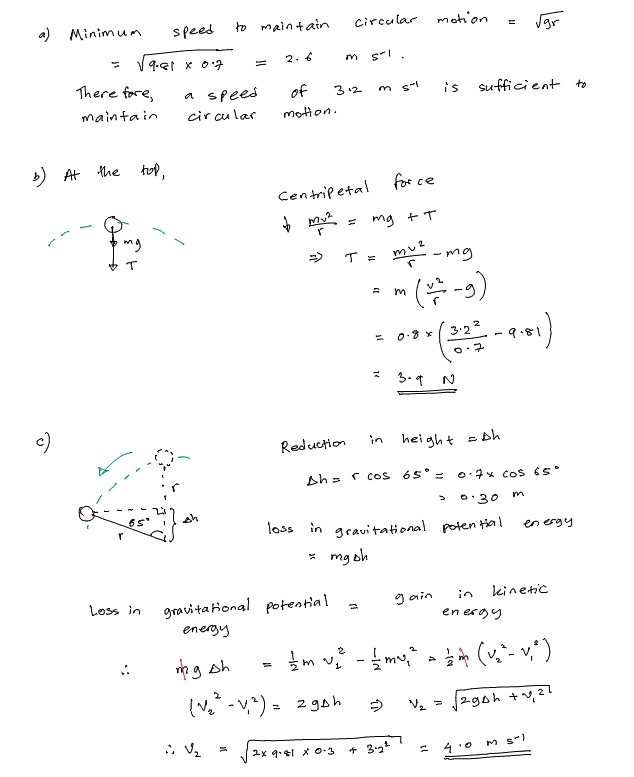 a) Minimum speed to maintain circular motion = √gr
= √9.81 x 0.7 = 2.6 m s⁻¹.
Therefore, a speed of 3.2 m s⁻¹ is sufficient to
maintain circular motion.
b) At the top,
mg
T
Centripetal force
↓ mv²/r = mg + T
⇒ T = mv²/r - mg
= m (v²/r - g)
= 0.8 x (3.2²/0.7 - 9.81)
= 3.9 N
c)
r
65°
Δh
r
Reduction in height = Δh
Δh = r cos 65° = 0.7 x cos 65°
= 0.30 m
loss in gravitational potential energy
= mgΔh
Loss in gravitational potential energy = gain in kinetic energy
∴ mgΔh = ½mv₂² - ½mv₁² = ½m (v₂² - v₁²)
(v₂² - v₁²) = 2gΔh ⇒ v₂ = √2gΔh + v₁²
∴ v₂ = √2x 9.81 x 0.3 + 3.2² = 4.0 m s⁻¹